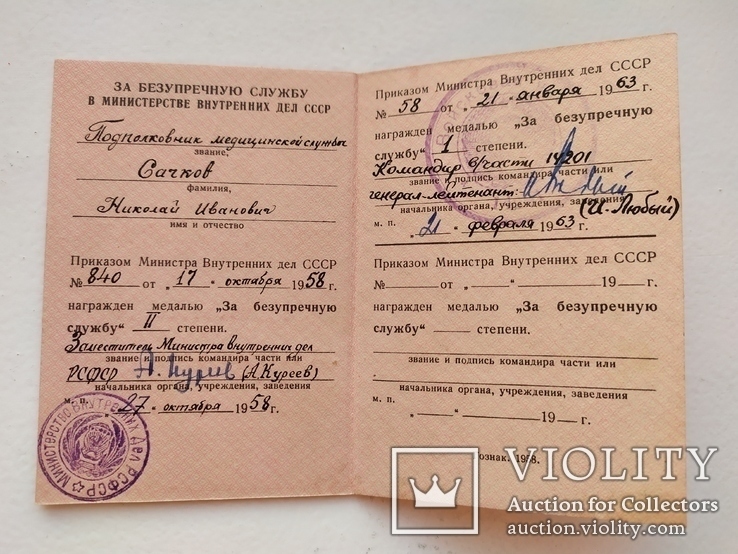 ЗА БЕЗУПРЕЧНУЮ СЛУЖБУ
В МИНИСТЕРСТВЕ ВНУТРЕННИХ ДЕЛ СССР
Подполковник медицинской службы
звание,
Сачков
фамилия,
Николай Иванович
имя и отчество
Приказом Министра Внутренних дел СССР
№ 840 от „17" октября 1958 г.
награжден медалью „За безупречную
службу" II степени.
Заместитель Министра внутренних дел
звание и подпись командира части или
РСФСР (А.Куреев)
начальника органа, учреждения, заведения
м. п. „27" октября 1958 г.
МИНИСТЕРСТВО ВНУТРЕННИХ ДЕЛ РСФСР
Приказом Министра Внутренних дел СССР
№ 58 от „21" января 1963 г.
награжден медалью „За безупречную
службу" I степени.
Командир в/части 14201
звание и подпись командира части или
генерал-лейтенант:
начальника органа, учреждения, заведения
(И. Любый)
м. п. „21" февраля 1963 г.
Приказом Министра Внутренних дел СССР
№—— от „——" —— 19— г.
награжден медалью „За безупречную
службу" —— степени.
звание и подпись командира части или
начальника органа, учреждения, заведения
м. п. „——" —— 19— г.
ознак. 1958.
VIOLITY
Auction for Collectors
auction.violity.com